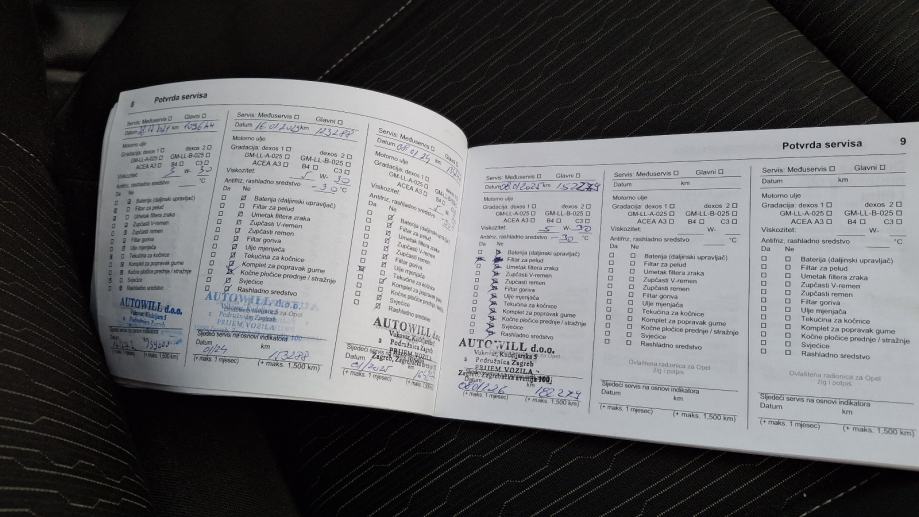 8 Potvrda servisa
Servis: Međuservis Glavni
Datum km
Motorno ulje
Gradacija: dexos 1 dexos 2
GM-LL-A-025 GM-LL-B-025
ACEA A3 B4 C3
Viskozitet 5 W- 30
Antifriz, rashladno sredstvo °C
Da Ne
Baterija (daljinski upravljač)
Filtar za pelud
Umetak filtera zraka
Zupčasti V-remen
Zupčasti remen
Filtar goriva
Ulje mjenjača
Tekućina za kočnice
Komplet za popravak gume
Kočne pločice prednje / stražnje
Svjećice
Rashladno sredstvo
AUTOWILL d.o.o.
Sljedeći servis na osnovi indikatora
Datum km
(+ maks. 1 mjesec) (+ maks. 1,500 km)
Servis: Međuservis Glavni
Datum 16.01.2023 km
Motorno ulje
Gradacija: dexos 1 dexos 2
GM-LL-A-025 GM-LL-B-025
ACEA A3 B4 C3
Viskozitet 5 W- 30
Antifriz, rashladno sredstvo -30 °C
Da Ne
Baterija (daljinski upravljač)
Filtar za pelud
Umetak filtera zraka
Zupčasti V-remen
Zupčasti remen
Filtar goriva
Ulje mjenjača
Tekućina za kočnice
Komplet za popravak gume
Kočne pločice prednje / stražnje
Svjećice
Rashladno sredstvo
AUTOWILL d.o.o.
PRIJEM VOZILA
Sljedeći servis na osnovi indikatora
Datum km
(+ maks. 1 mjesec) (+ maks. 1,500 km)
Servis: Međuservis
Datum
Motorno ulje
Gradacija: dexos 1
GM-LL-A-025
ACEA A3
Viskozitet
Antifriz, rashladno sredstvo
Da Ne
Baterija (daljinski
Filtar za pelud
Umetak filtera zraka
Zupčasti V-remen
Zupčasti remen
Filtar goriva
Ulje mjenjača
Tekućina za kočnice
Komplet za popravak
Kočne pločice
Svjećice
Rashladno sredstvo
AUTOWILL d.o.o.
Podružnica Zagreb
PRIJEM VOZILA
Datum 01/2025
(+ maks. 1 mjesec)
Potvrda servisa 9
Servis: Međuservis Glavni
Datum 08.01.2025 km 152279
Motorno ulje
Gradacija: dexos 1 dexos 2
GM-LL-A-025 GM-LL-B-025
ACEA A3 B4 C3
Viskozitet 5 W- 30
Antifriz, rashladno sredstvo -30 °C
Da Ne
Baterija (daljinski upravljač)
Filtar za pelud
Umetak filtera zraka
Zupčasti V-remen
Zupčasti remen
Filtar goriva
Ulje mjenjača
Tekućina za kočnice
Komplet za popravak gume
Kočne pločice prednje / stražnje
Svjećice
Rashladno sredstvo
AUTOWILL d.o.o.
Podružnica Zagreb
PRIJEM VOZILA
182279
(+ maks. 1 mjesec) (+ maks. 1,500 km)
Servis: Međuservis Glavni
Datum km
Motorno ulje
Gradacija: dexos 1 dexos 2
GM-LL-A-025 GM-LL-B-025
ACEA A3 B4 C3
Viskozitet W-
Antifriz, rashladno sredstvo °C
Da Ne
Baterija (daljinski upravljač)
Filtar za pelud
Umetak filtera zraka
Zupčasti V-remen
Zupčasti remen
Filtar goriva
Ulje mjenjača
Tekućina za kočnice
Komplet za popravak gume
Kočne pločice prednje / stražnje
Svjećice
Rashladno sredstvo
Ovlaštena radionica za Opel
žig i potpis
Sljedeći servis na osnovi indikatora
Datum km
(+ maks. 1 mjesec) (+ maks. 1,500 km)
Servis: Međuservis Glavni
Datum km
Motorno ulje
Gradacija: dexos 1 dexos 2
GM-LL-A-025 GM-LL-B-025
ACEA A3 B4 C3
Viskozitet W-
Antifriz, rashladno sredstvo °C
Da Ne
Baterija (daljinski upravljač)
Filtar za pelud
Umetak filtera zraka
Zupčasti V-remen
Zupčasti remen
Filtar goriva
Ulje mjenjača
Tekućina za kočnice
Komplet za popravak gume
Kočne pločice prednje / stražnje
Svjećice
Rashladno sredstvo
Ovlaštena radionica za Opel
žig i potpis
Sljedeći servis na osnovi indikatora
Datum km
(+ maks. 1 mjesec) (+ maks. 1,500 km)